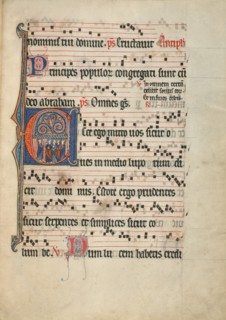 nominis tui domine. ps Eructavit Antiph
Principes populor congregati sunt cu
deo abraham. ps. Omnes gs.
Ecce ego mitto vos sicut o
ves in medio lupo rum di
cit domi nus. Estote ergo prudentes
sicut serpentes et simplices sicut co
lum be. V Dum lu cem habetis credi